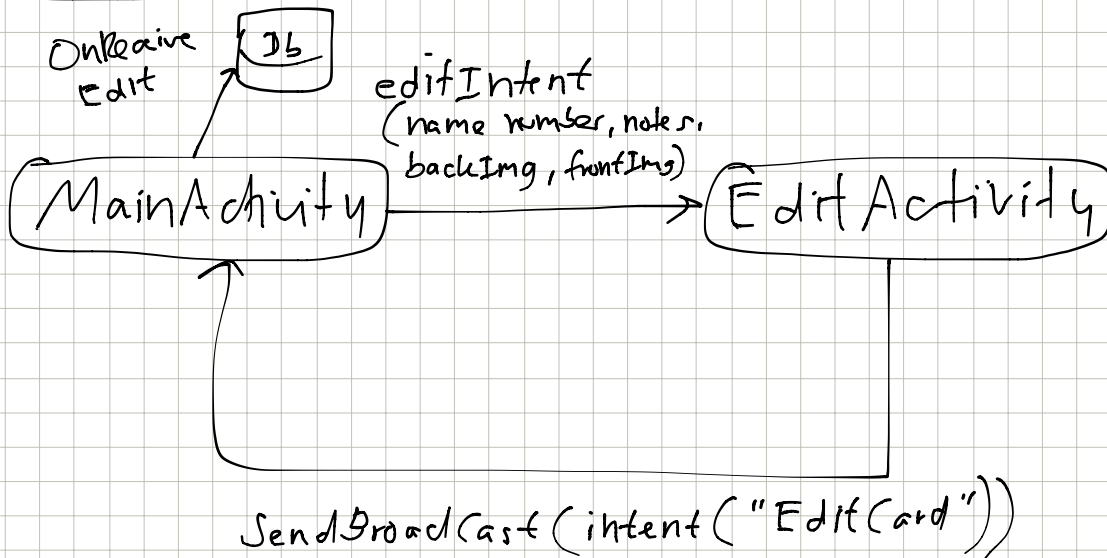 OnReceive
Edit
Db
editIntent
(name number, notes,
backImg, frontImg)
MainActivity
EditActivity
SendBroadCast(intent("EditCard"))